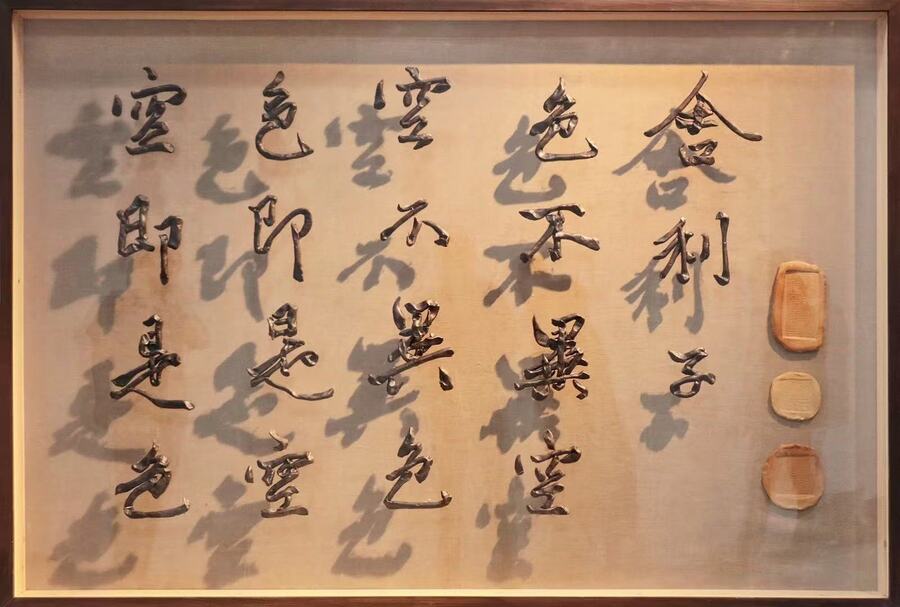 舍利子
色不異空
空不異色
色即是空
空即是色